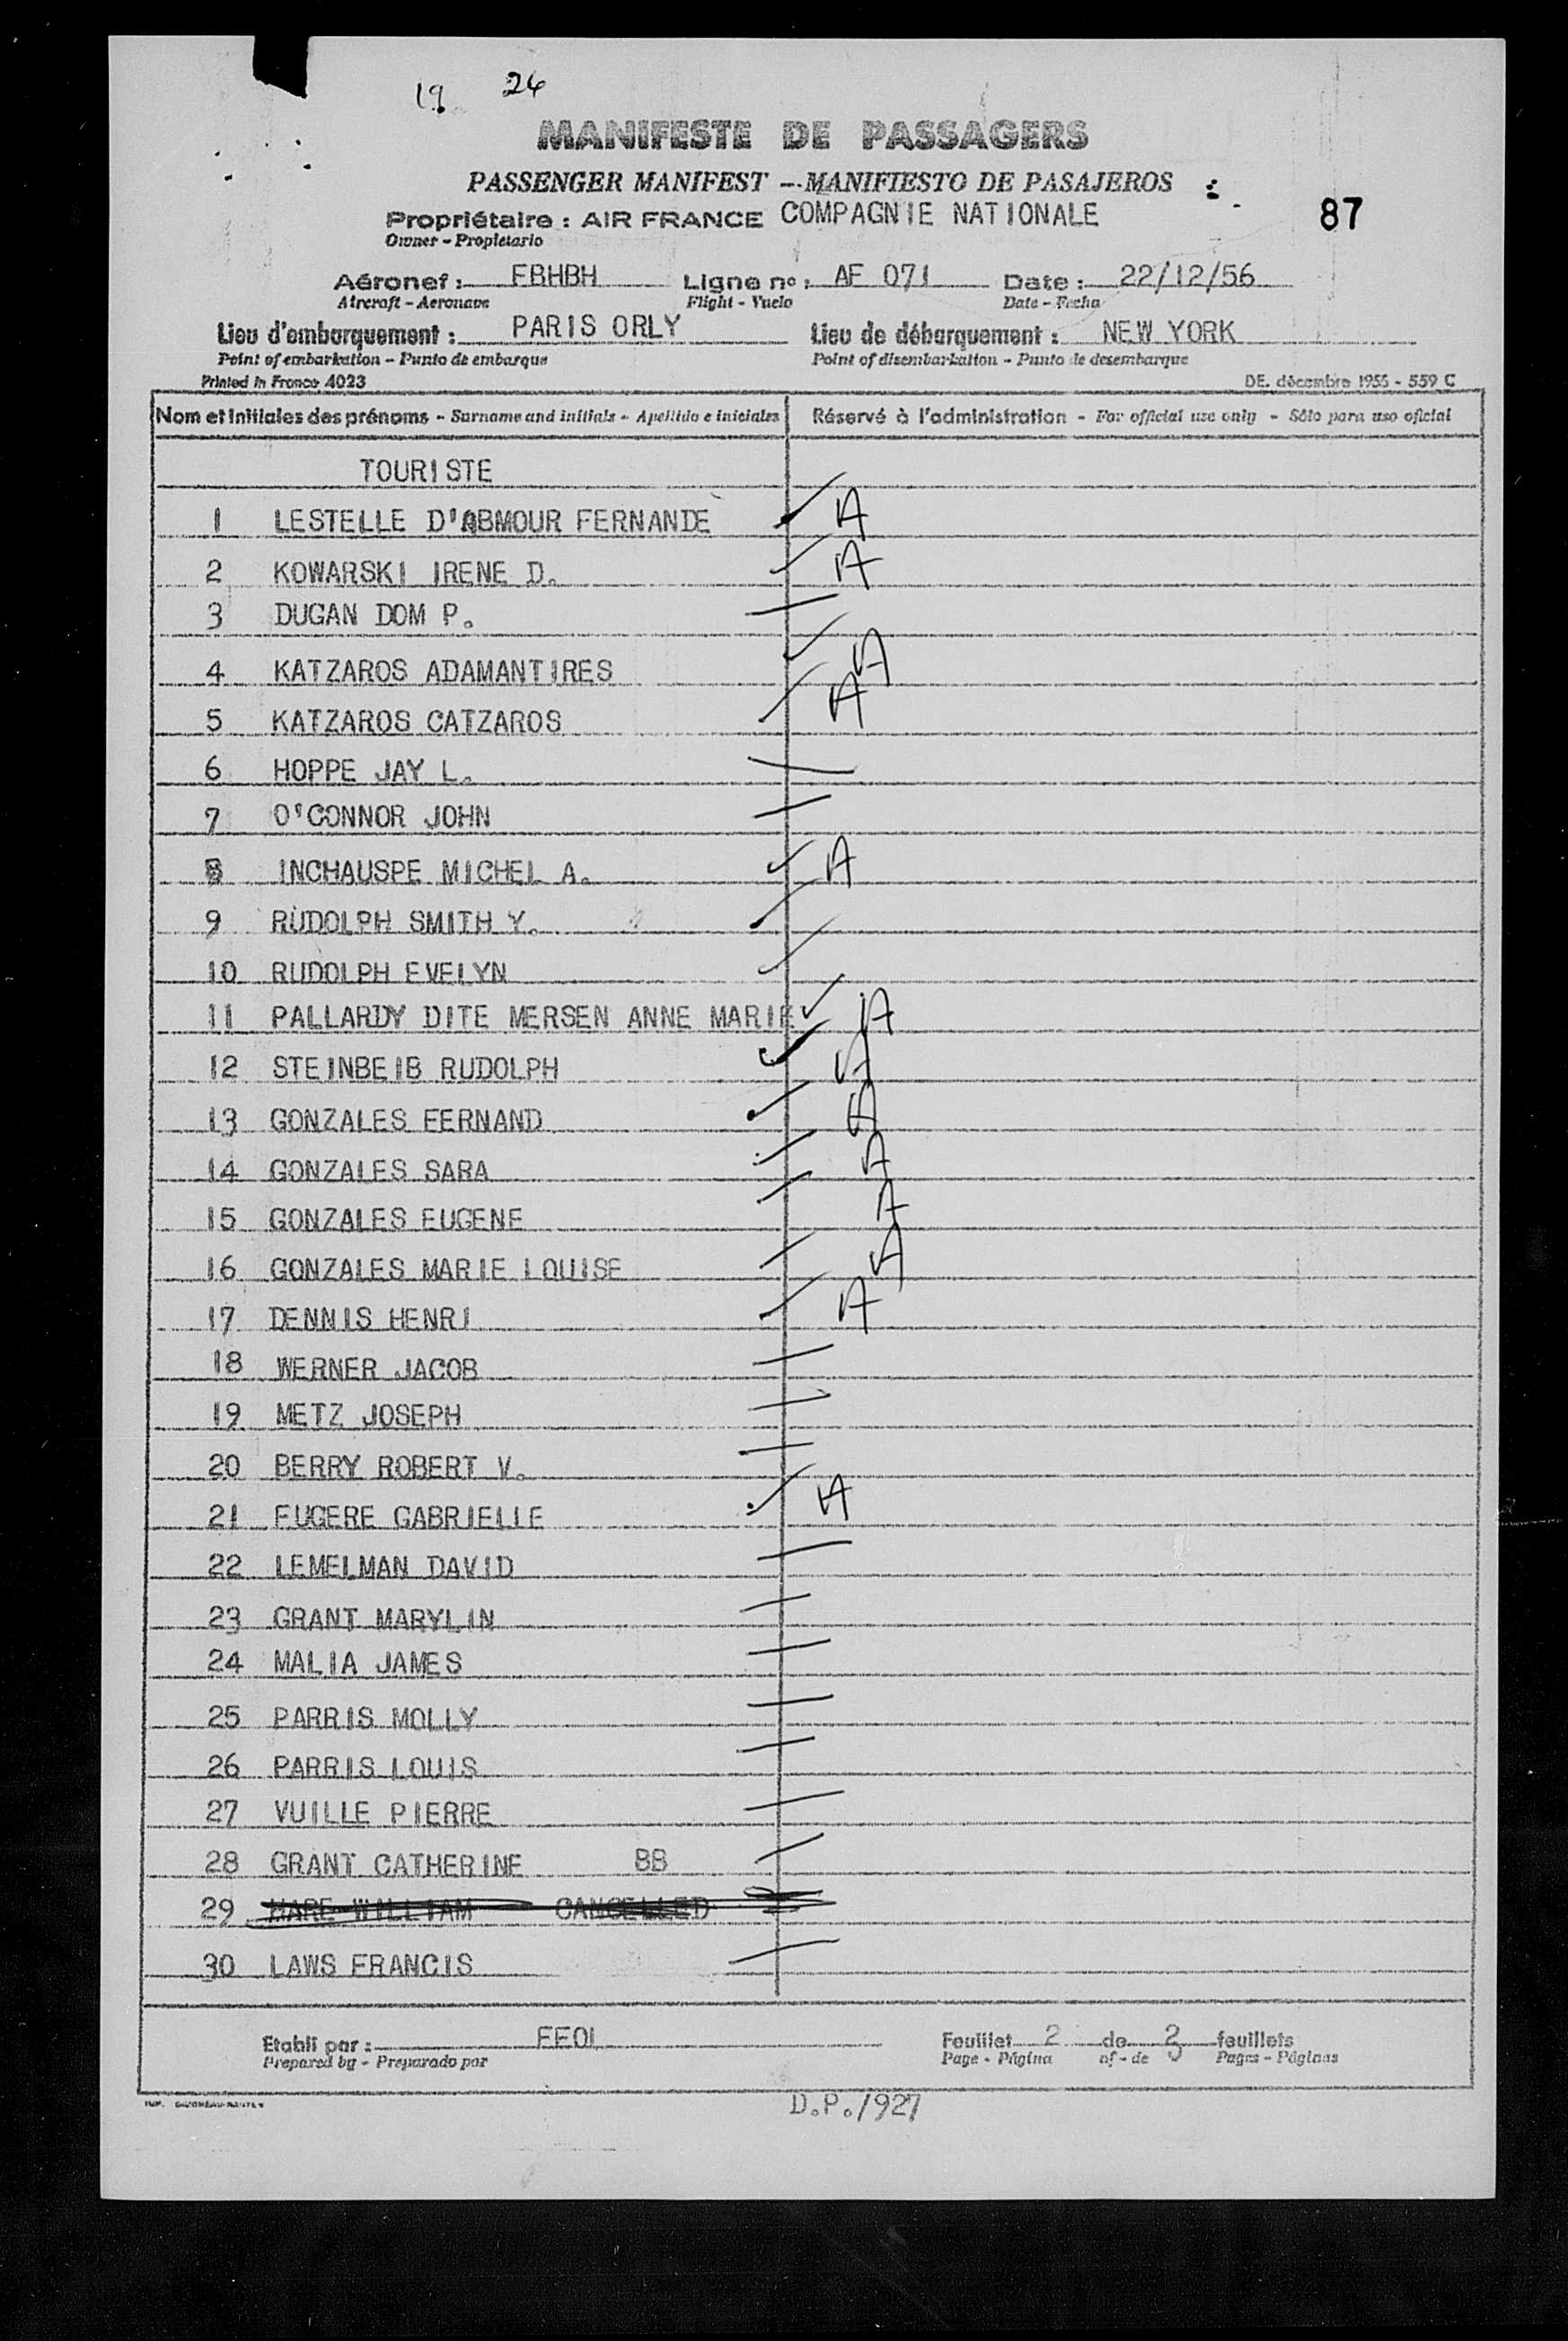 19 24
MANIFESTE DE PASSAGERS
PASSENGER MANIFEST -- MANIFIESTO DE PASAJEROS
87
Propriétaire : AIR FRANCE COMPAGNIE NATIONALE
Owner - Propietario
Aéronef : FBHBH Ligne nº : AF 071 Date : 22/12/56
Aircraft - Aeronave Flight - Vuelo Date - Fecha
Lieu d'embarquement : PARIS ORLY Lieu de débarquement : NEW YORK
Point of embarkation - Punto de embarque Point of disembarkation - Punto de desembarque
Printed in France 4023 DE. décembre 1955 - 559 C
Nom et initiales des prénoms - Surname and initials - Apellido e iniciales Réservé à l'administration - For official use only - Sólo para uso oficial
TOURISTE
1 LESTELLE D'ABMOUR FERNANDE A
2 KOWARSKI IRENE D. A
3 DUGAN DOM P.
4 KATZAROS ADAMANTIRES A
5 KATZAROS CATZAROS A
6 HOPPE JAY L.
7 O'CONNOR JOHN
8 INCHAUSPE MICHEL A. A
9 RUDOLPH SMITH Y.
10 RUDOLPH EVELYN
11 PALLARDY DITE MERSEN ANNE MARIE A
12 STEINBEIB RUDOLPH A
13 GONZALES FERNAND A
14 GONZALES SARA A
15 GONZALES EUGENE A
16 GONZALES MARIE LOUISE A
17 DENNIS HENRI A
18 WERNER JACOB
19 METZ JOSEPH
20 BERRY ROBERT V.
21 FUGERE GABRIELLE A
22 LEMELMAN DAVID
23 GRANT MARYLIN
24 MALIA JAMES
25 PARRIS MOLLY
26 PARRIS LOUIS
27 VUILLE PIERRE
28 GRANT CATHERINE BB
29 HARE WILLIAM CANCELLED
30 LAWS FRANCIS
Etabli par : FEOL Feuillet 2 de 3 feuillets
Prepared by - Preparado por Page - Página of - de Pages - Páginas
D.P./927